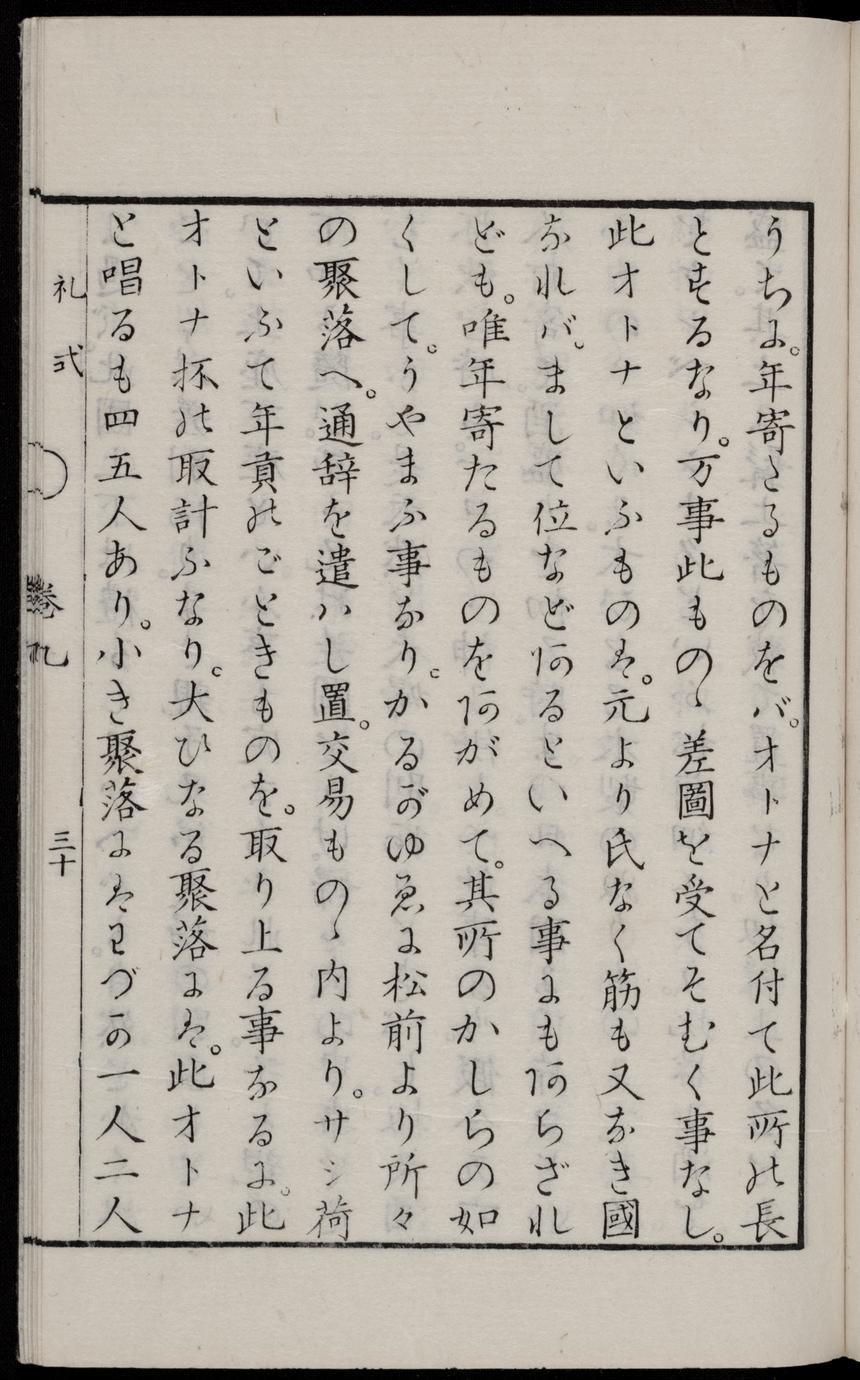 うちに。年寄たるものをバ。オトナと名付て此所の長
とするなり。万事此ものゝ差圖を受てそむく事なし。
此オトナといふものは。元より氏なく筋も又なき國
なれバ。まして位などあるといへる事にもあらざれ
ども。唯年寄たるものをあがめて。其所のかしらの如
くして。うやまふ事なり。かるがゆゑに松前より所々
の聚落へ。通辞を遣ハし置。交易ものゝ内より。サシ荷
といふて年貢のごときものを。取り上る事なるに。此
オトナ抔の取計ふなり。大ひなる聚落には。此オトナ
と唱るも四五人あり。小き聚落にはわづか一人二人
礼式 巻九 三十